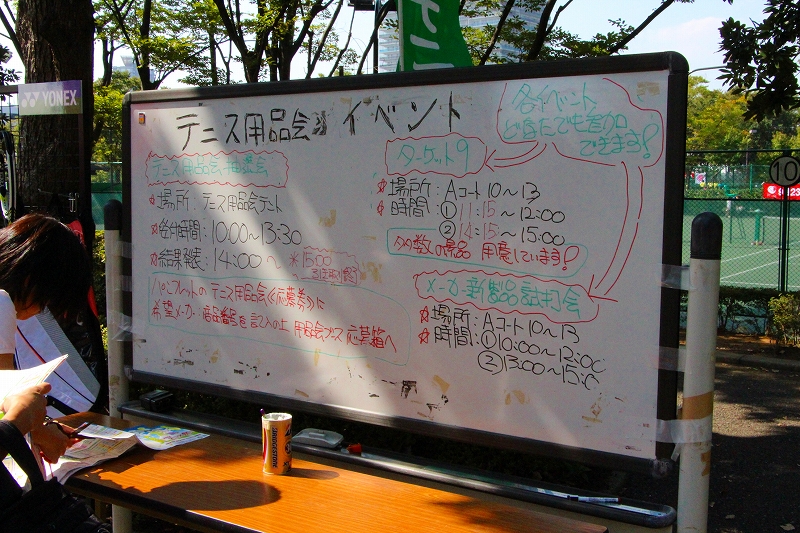 YONEX
テニス用品会 イベント
テニス用品会 抽選会
☆場所：テニス用品会テント
☆受付時間：10:00〜13:30
☆結果発表：14:00〜 ※15:00
パンフレットの テニス用品会《応募券》に
希望メーカー・商品番号を記入の上 用品会ブース応募箱へ
各イベント
どなたでも参加
できます！
ターゲット9
☆場所：Aコート10〜13
☆時間：①11:15〜12:00
②14:15〜15:00
多数の景品 用意しています！
メーカー新製品試打会
☆場所：Aコート10〜13
☆時間：①10:00〜12:00
②13:00〜15:00
10
BRIDGESTONE